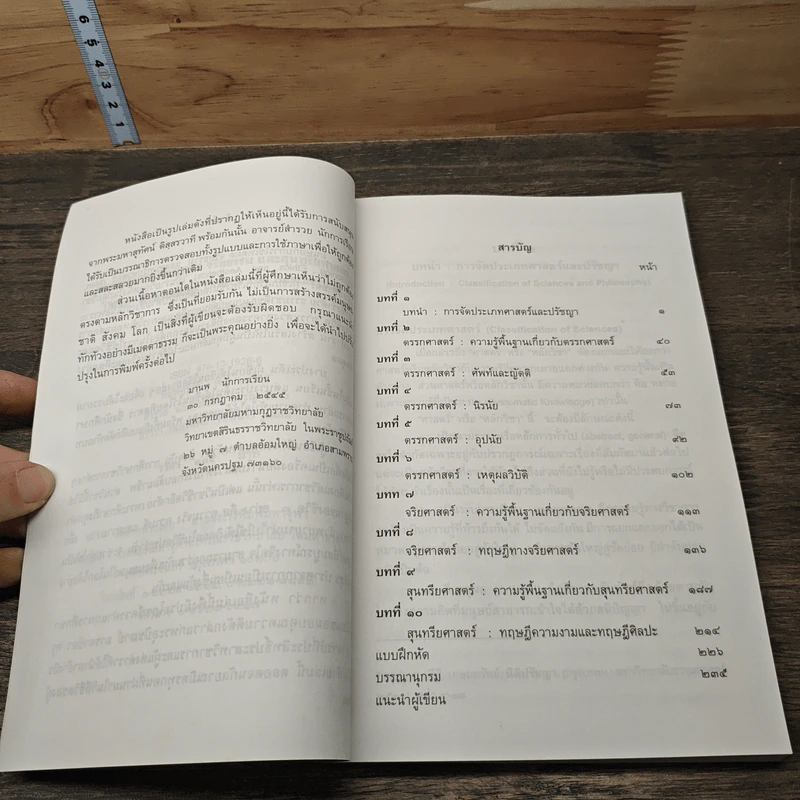 6 5 4 3 2 1
หนังสือเป็นรูปเล่มดังที่ปรากฏให้เห็นอยู่นี้ได้รับการสนับสนุน
จากพระมหาสุทัศน์ ติสฺสรวาที พร้อมกันนั้น อาจารย์สำรวย นักการเรียน
ได้รับเป็นบรรณาธิการตรวจสอบทั้งรูปแบบและการใช้ภาษาเพื่อให้ถูกต้อง
และสละสลวยมากยิ่งขึ้นกว่าเดิม
ส่วนเนื้อหาตอนใดในหนังสือเล่มนี้ที่ผู้ศึกษาเห็นว่าไม่ถูกต้อง
ตรงตามหลักวิชาการ ซึ่งเป็นที่ยอมรับกัน ไม่เป็นการสร้างสรรค์
ชาติ สังคม โลก เป็นสิ่งที่ผู้เขียนจะต้องรับผิดชอบ กรุณาแนะนำ
ทักท้วงอย่างมีเมตตาธรรม ก็จะเป็นพระคุณอย่างยิ่ง เพื่อจะได้นำไป
ปรุงในการพิมพ์ครั้งต่อไป
มานพ นักการเรียน
๓๐ กรกฎาคม ๒๕๔๕
มหาวิทยาลัยมหามกุฏราชวิทยาลัย
วิทยาเขตสิรินธรราชวิทยาลัย ในพระราชูปถัมภ์
๒๖ หมู่ ๗ ตำบลอ้อมใหญ่ อำเภอสามพราน
จังหวัดนครปฐม ๗๓๑๖๐
สารบัญ
หน้า
บทที่ ๑
บทนำ : การจัดประเภทศาสตร์และปรัชญา ๑
บทที่ ๒
ตรรกศาสตร์ : ความรู้พื้นฐานเกี่ยวกับตรรกศาสตร์ ๔๐
บทที่ ๓
ตรรกศาสตร์ : ศัพท์และญัตติ ๕๓
บทที่ ๔
ตรรกศาสตร์ : นิรนัย ๗๓
บทที่ ๕
ตรรกศาสตร์ : อุปนัย ๙๒
บทที่ ๖
ตรรกศาสตร์ : เหตุผลวิบัติ ๑๐๒
บทที่ ๗
จริยศาสตร์ : ความรู้พื้นฐานเกี่ยวกับจริยศาสตร์ ๑๑๓
บทที่ ๘
จริยศาสตร์ : ทฤษฎีทางจริยศาสตร์ ๑๓๖
บทที่ ๙
สุนทรียศาสตร์ : ความรู้พื้นฐานเกี่ยวกับสุนทรียศาสตร์ ๑๘๗
บทที่ ๑๐
สุนทรียศาสตร์ : ทฤษฎีความงามและทฤษฎีศิลปะ ๒๑๔
แบบฝึกหัด ๒๒๖
บรรณานุกรม ๒๓๕
แนะนำผู้เขียน